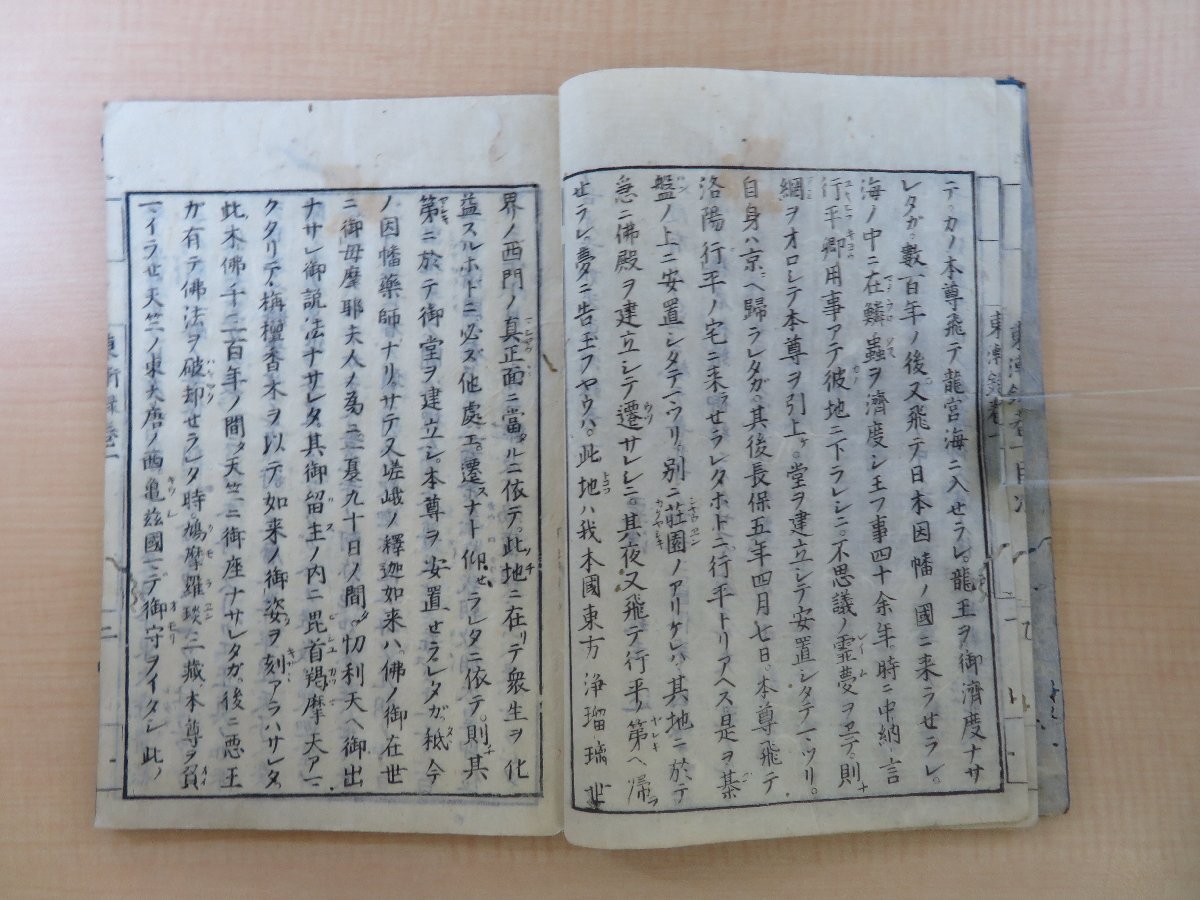 テ。カノ本尊飛テ龍宮海ニ入せラレ。龍王ヲ御濟度ナサ
レタガ。數百年ノ後。又飛テ日本因幡ノ國ニ来ラせラレ。
海ノ中ニ在鱗蟲ヲ濟度シ玉フ事四十余年。時ニ中納言
行平卿用事アテ彼地ニ下ラレシニ。不思議ノ霊夢ヲヱテ。則
網ヲオロシテ本尊ヲ引上ケ。堂ヲ建立シテ安置シタテマツリ。
自身ハ京ヘ歸ラレタガ。其後長保五年四月七日。本尊飛テ
洛陽行平ノ宅ニ来ラせラレタホドニ。行平トリアヘス是ヲ棊
盤ノ上ニ安置シタテマツリ。別ニ莊園ノアリケレハ其地ニ於テ
急ニ佛殿ヲ建立シテ遷サレシニ。其夜又飛テ行平ノ第ヘ歸ラ
せラレ。夢ニ告玉フヤウハ。此地ハ我本國東方浄瑠璃世
界ノ西門ノ真正面ニ當ルニ依テ。此地ニ在リテ衆生ヲ化
益スルホドニ必ズ他處エ遷スナト仰せラレタニ依テ。則其
第ニ於テ御堂ヲ建立シ。本尊ヲ安置せラレタガ。秖今
ノ因幡藥師ナリ。サテ又嵯峨ノ釋迦如来ハ。佛ノ御在世
ニ御母摩耶夫人ノ為ニ一夏九十日ノ間。忉利天ヘ御出
ナサレ御説法ナサレタ。其御留主ノ内ニ毘首羯摩天アマ
クタリテ。栴檀香木ヲ以テ。如来ノ御姿ヲ刻アラハサレタ。
此木佛千二百年ノ間タ天竺ニ御座ナサレタガ。後ニ悪王
ガ有テ佛法ヲ破却せラレタ時。鳩摩羅琰三藏。本尊ヲ負
マイラせ天竺ノ東大唐ノ西亀茲國マデ御守ヲイタシ此ノ
東漸録巻一目次
東漸録巻一